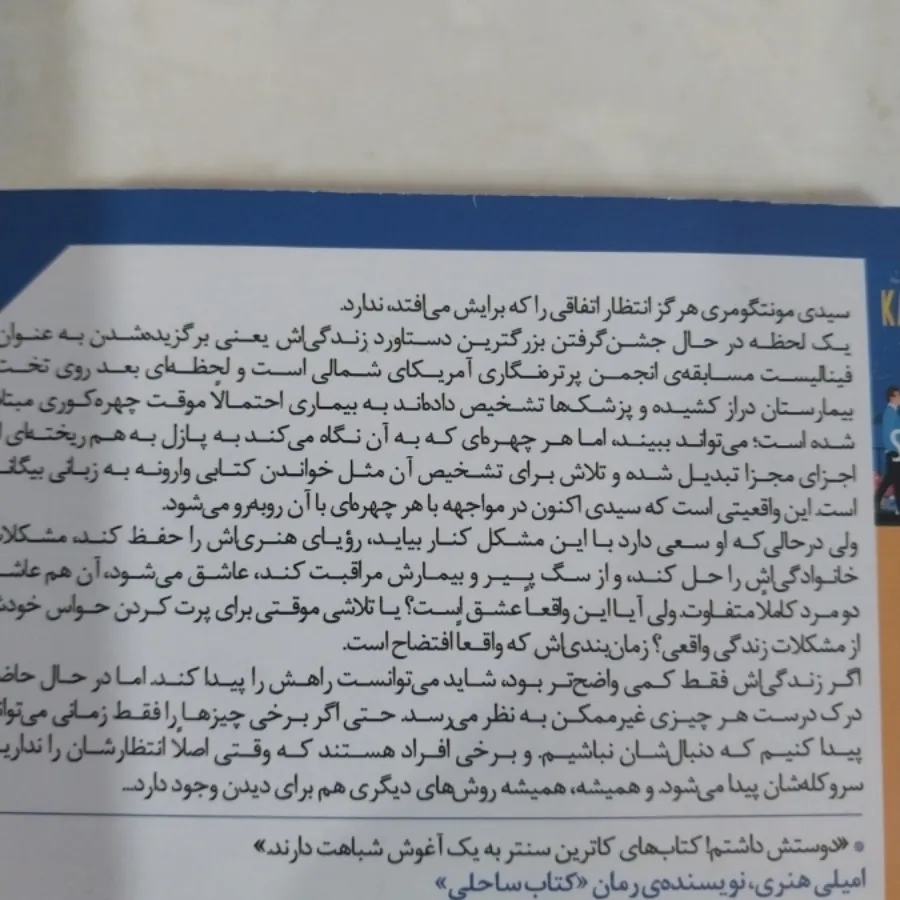 سیدی مونتگومری هرگز انتظار اتفاقی را که برایش می‌افتد، ندارد.
یک لحظه در حال جشن‌گرفتن بزرگترین دستاورد زندگی‌اش یعنی برگزیده‌شدن به عنوان
فینالیست مسابقه‌ی انجمن پرتره‌نگاری آمریکای شمالی است و لحظه‌ای بعد روی تخت
بیمارستان دراز کشیده و پزشک‌ها تشخیص داده‌اند به بیماری احتمالاً موقت چهره‌کوری
شده است؛ می‌تواند ببیند، اما هر چهره‌ای که به آن نگاه می‌کند به پازل به هم ریخته‌ای
اجزای مجزا تبدیل شده و تلاش برای تشخیص آن مثل خواندن کتابی وارونه به زبانی
است. این واقعیتی است که سیدی اکنون در مواجهه با هر چهره‌ای با آن روبه‌رو می‌شود.
ولی درحالی‌که او سعی دارد با این مشکل کنار بیاید، رؤیای هنری‌اش را حفظ کند،
خانوادگی‌اش را حل کند، و از سگ پیر و بیمارش مراقبت کند، عاشق می‌شود، آن هم
دو مرد کاملاً متفاوت. ولی آیا این واقعاً عشق است؟ یا تلاشی موقتی برای پرت کردن حواس
از مشکلات زندگی واقعی؟ زمان‌بندی‌اش که واقعاً افتضاح است.
اگر زندگی‌اش فقط کمی واضح‌تر بود، شاید می‌توانست راهش را پیدا کند. اما در حال
درک درست هر چیزی غیرممکن به نظر می‌رسد. حتی اگر برخی چیزها را فقط زمانی
پیدا کنیم که دنبال‌شان نباشیم. و برخی افراد هستند که وقتی اصلاً انتظارشان را
سروکله‌شان پیدا می‌شود. و همیشه، همیشه روش‌های دیگری هم برای دیدن وجود دارد...
«دوستش داشتم! کتاب‌های کاترین سنتر به یک آغوش شباهت دارند.»
امیلی هنری، نویسنده‌ی رمان «کتاب ساحلی»